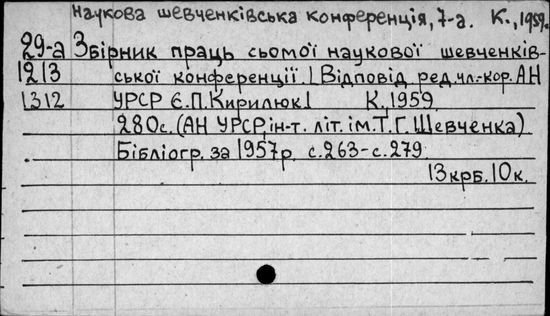 Наукова шевченківська конференція, 7-а. К., 1959.
29-а Збірник праць сьомої наукової шевченків-
1213 ської конференції. | Відповід. ред. чл.-кор. АН
1312 УРСР Є.П. Кирилюк | К., 1959.
280 с. (АН УРСР, ін-т. літ. ім. Т.Г. Шевченка)
Бібліогр. за 1957 р. с. 263-с. 279.
13 крб. 10 к.